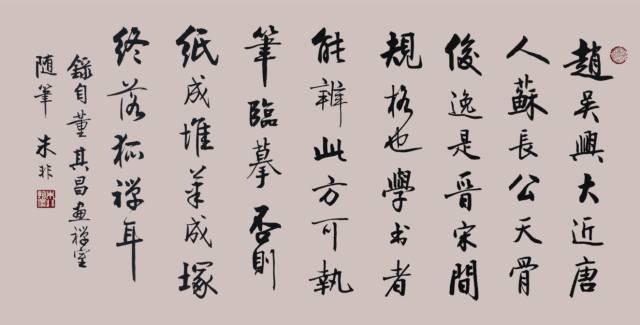 趙吴興大近唐
人蘇長公天骨
俊逸是晉宋間
規格也學書者
能辨此方可執
筆臨摹否則
紙成堆筆成塚
終落狐禅耳
錄自董其昌畫禅室
随筆 朱非